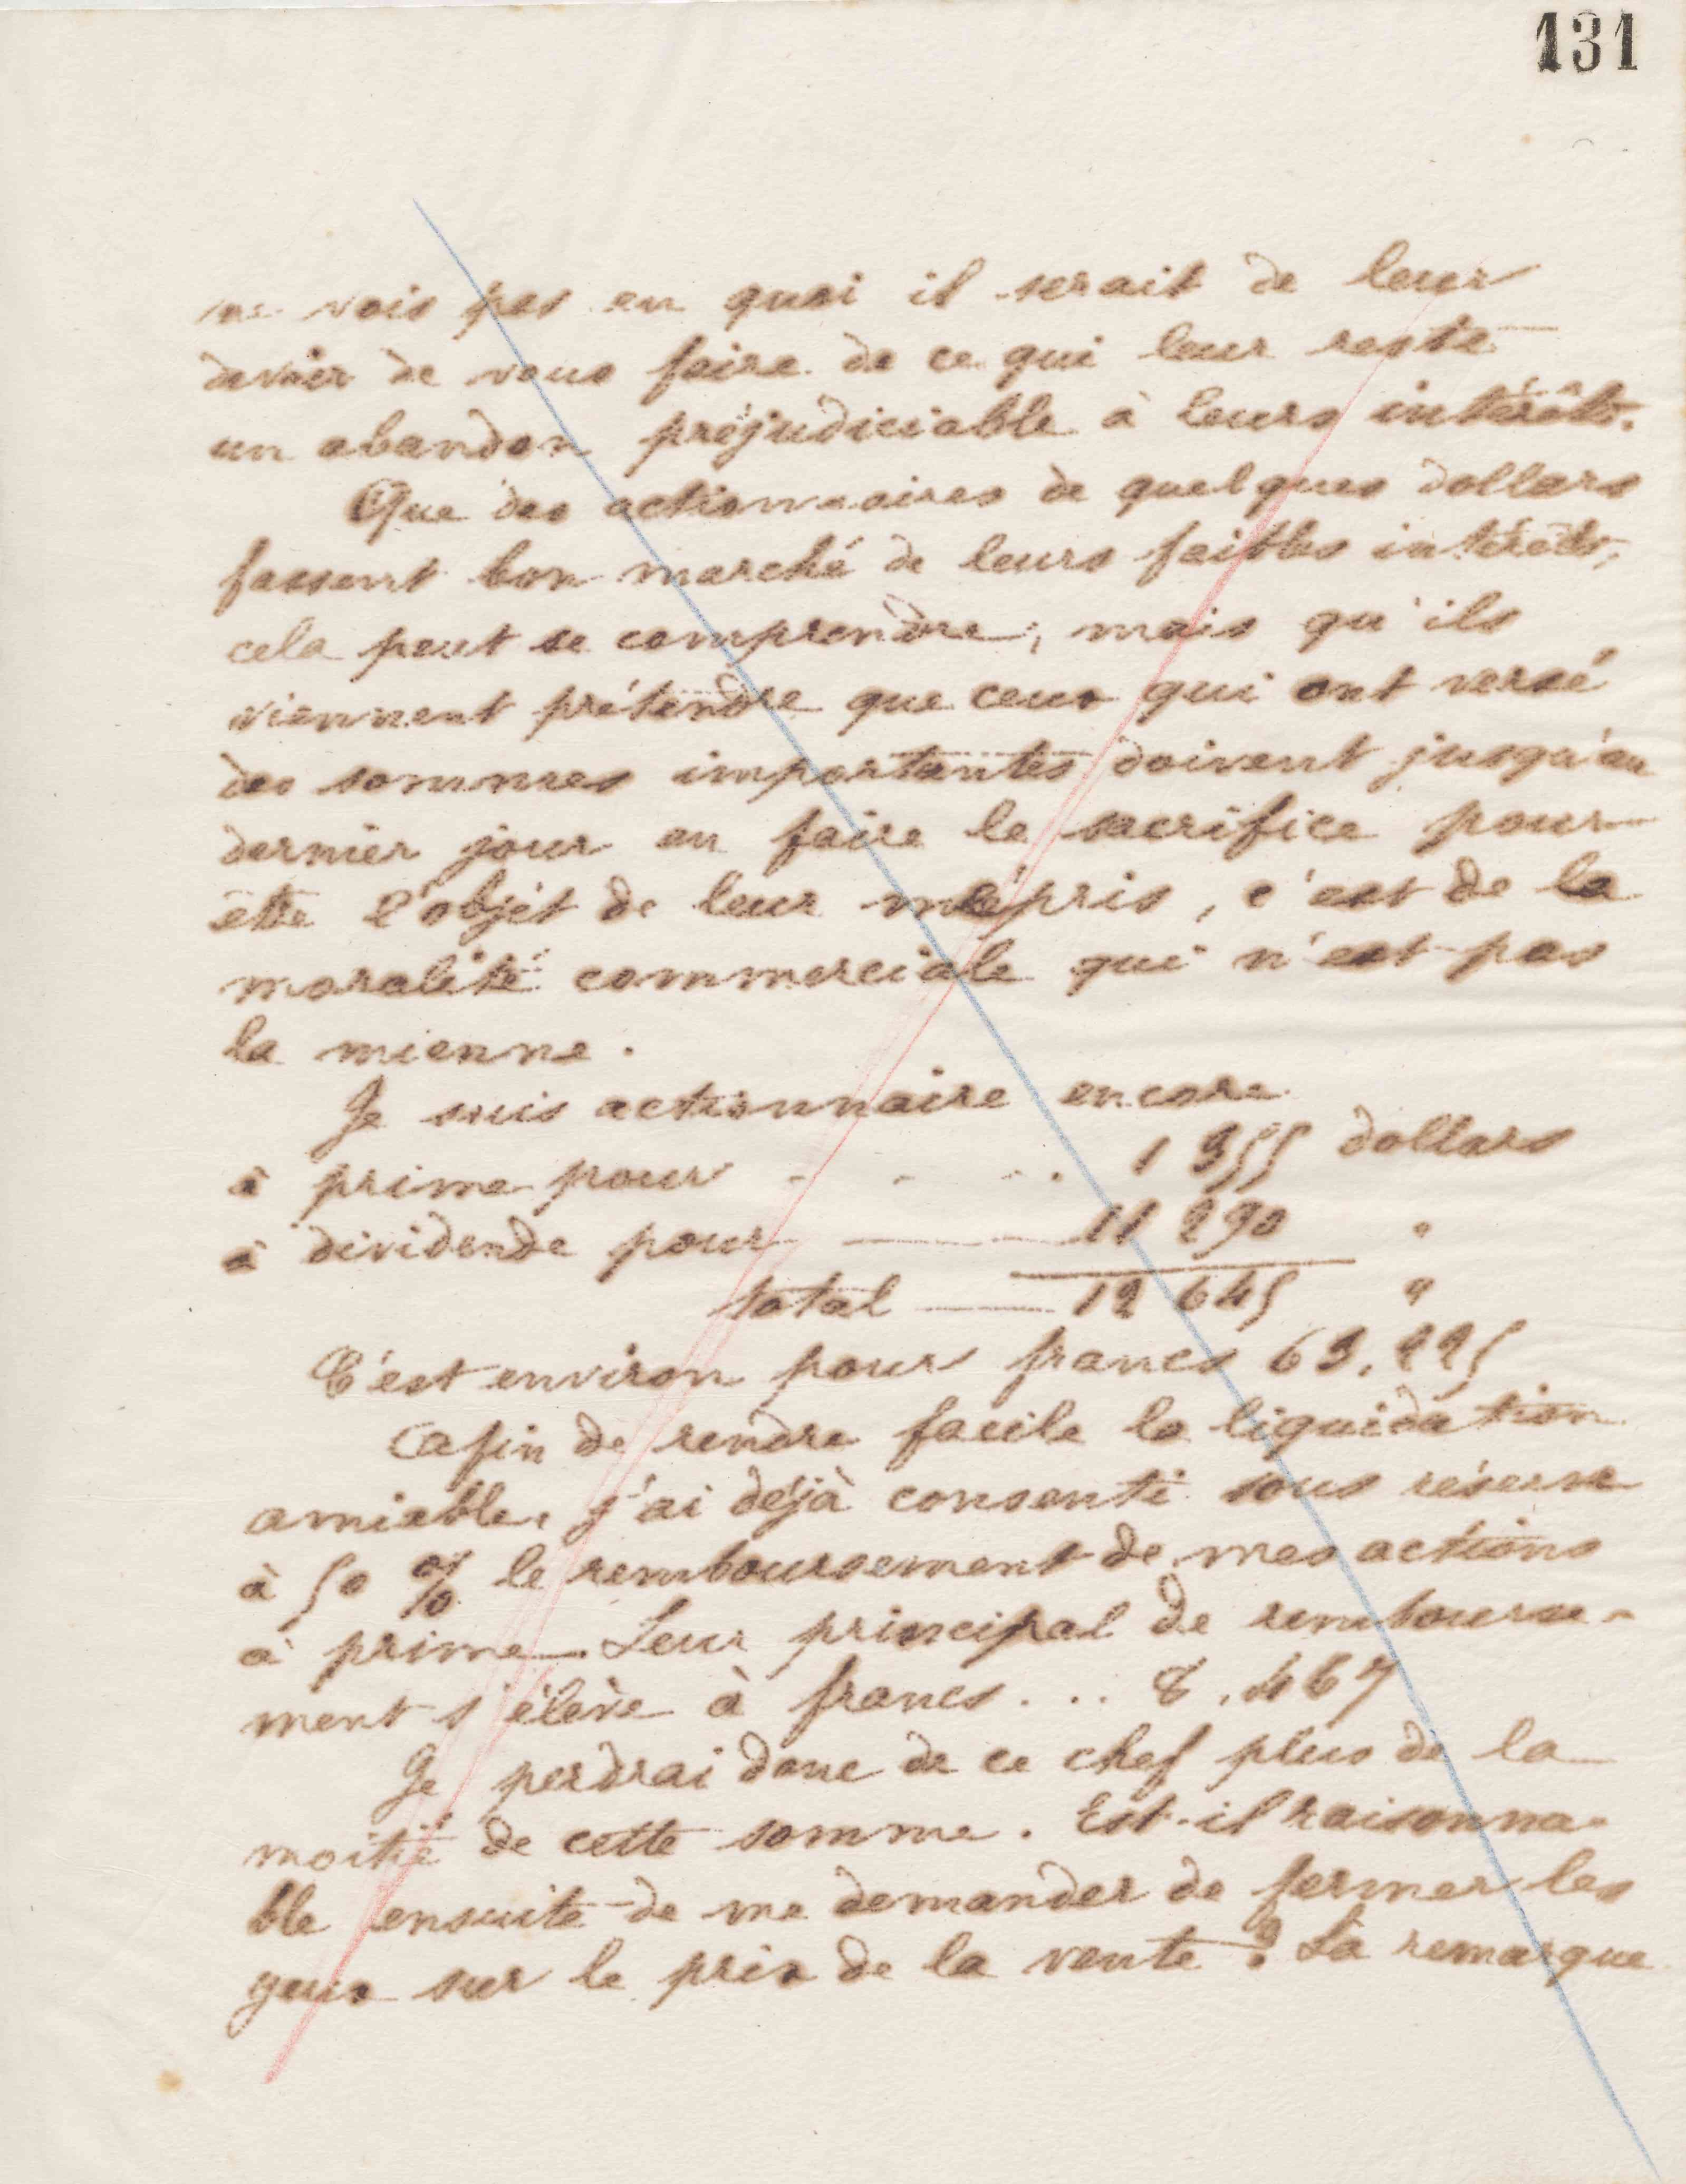 131
ne vois pas en quoi il serait de leur
devoir de vous faire de ce qui leur reste
un abandon préjudiciable à leurs intérêts.
Que des actionnaires de quelques dollars
fassent bon marché de leurs faibles intérêts,
cela peut se comprendre; mais qu'ils
viennent prétendre que ceux qui ont versé
des sommes importantes doivent jusqu'au
dernier jour en faire le sacrifice pour
être l'objet de leur mépris, c'est de la
moralité commerciale qui n'est pas
la mienne.
Je suis actionnaire encore
à prime pour - - - . 1 355 dollars
à dividende pour — 11 290 "
total — 12 645 "
C'est environ pour francs 63,225
Afin de rendre facile la liquidation
amiable, j'ai déjà consenti sous réserve
à 50 % le remboursement de mes actions
à prime. Leur principal de rembourse-
ment s'élève à francs ... 8,467
Je perdrai donc de ce chef plus de la
moitié de cette somme. Est-il raisonna-
ble ensuite de me demander de fermer les
yeux sur le prix de la vente? La remarque